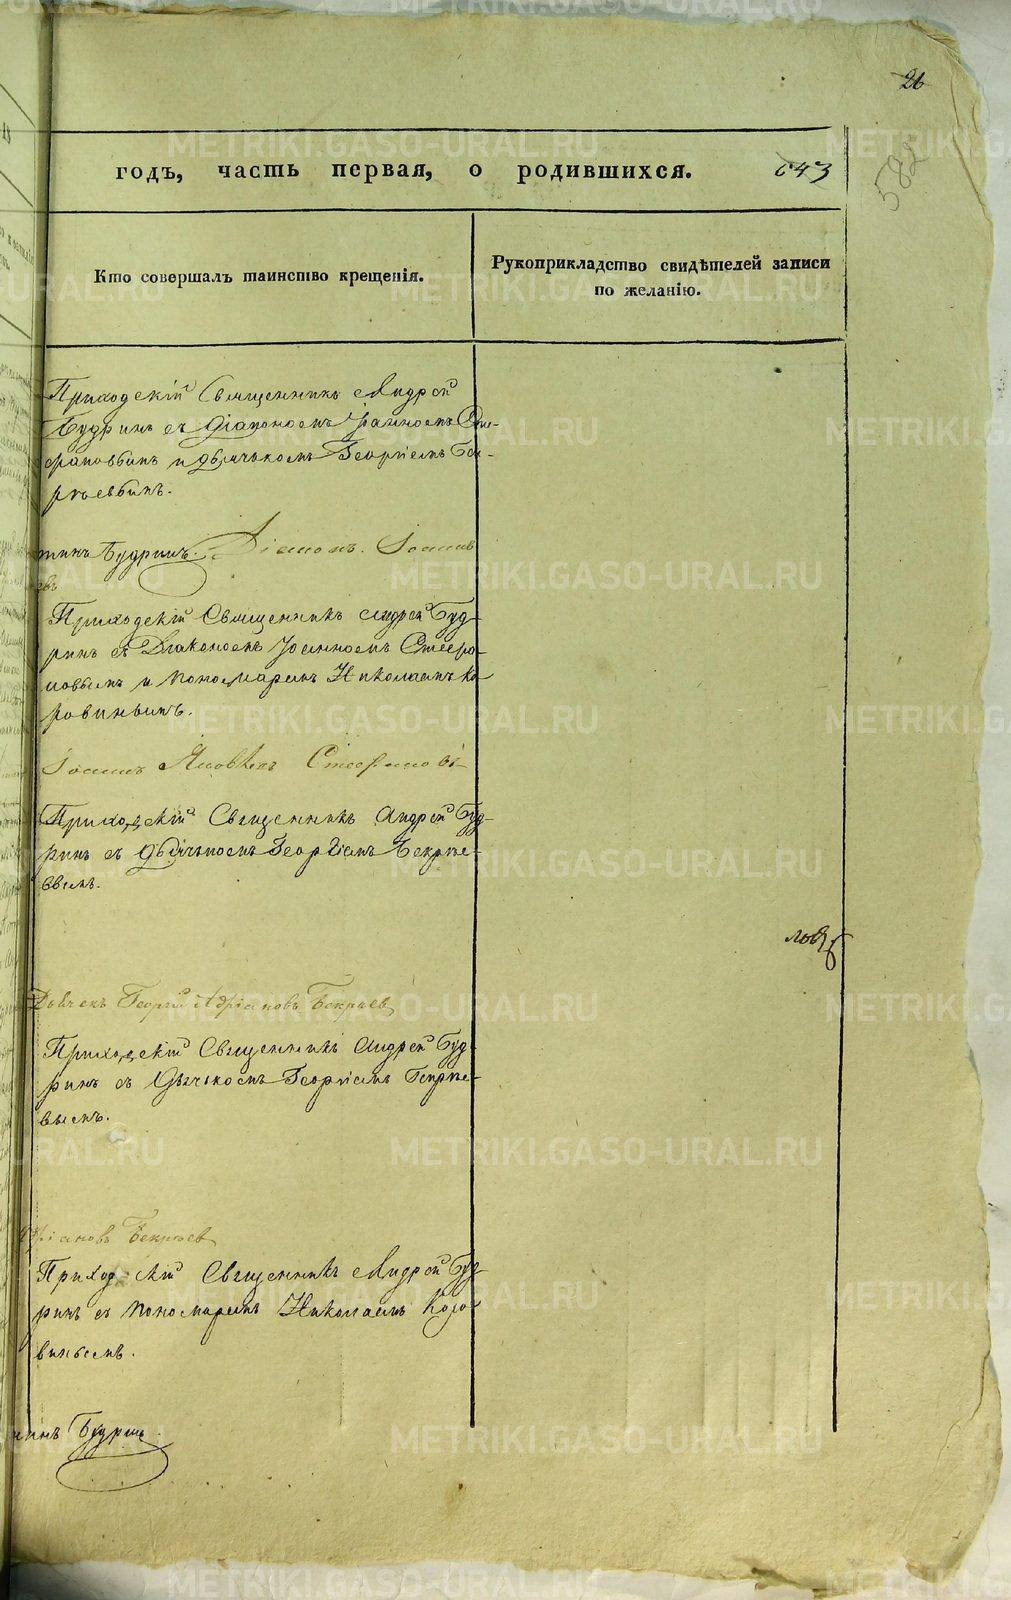 26
годъ, часть первая, о родившихся. 643
582
Кто совершалъ таинство крещенія.
Рукоприкладство свидѣтелей записи
по желанію.
Приходскій Священникъ Андрей
Будринъ съ Діакономъ Іоанномъ Сте-
фановымъ и дьячькомъ Георгіемъ Бек-
рѣевымъ.
Будринъ. Діаконъ Іоаннъ
Приходскій Священникъ Андрей Буд-
ринъ съ Діакономъ Іоанномъ Стефа-
новымъ и пономаремъ Николаемъ Ко-
ровинымъ.
Іоаннъ Яковлевъ Стефановъ
Приходскій Священникъ Андрей Буд-
ринъ съ дьячькомъ Георгіемъ Бекрѣе-
вымъ.
Дьячекъ Георгій Адріановъ Бекрѣев
Приходскій Священникъ Андрей Буд-
ринъ съ Дьячькомъ Георгіемъ Бекрѣе-
вымъ.
ріановъ Бекрѣев
Приходскій Священникъ Андрей Буд-
ринъ съ пономаремъ Николаемъ Коро-
винымъ.
Будринъ
METRIKI.GASO-URAL.RU